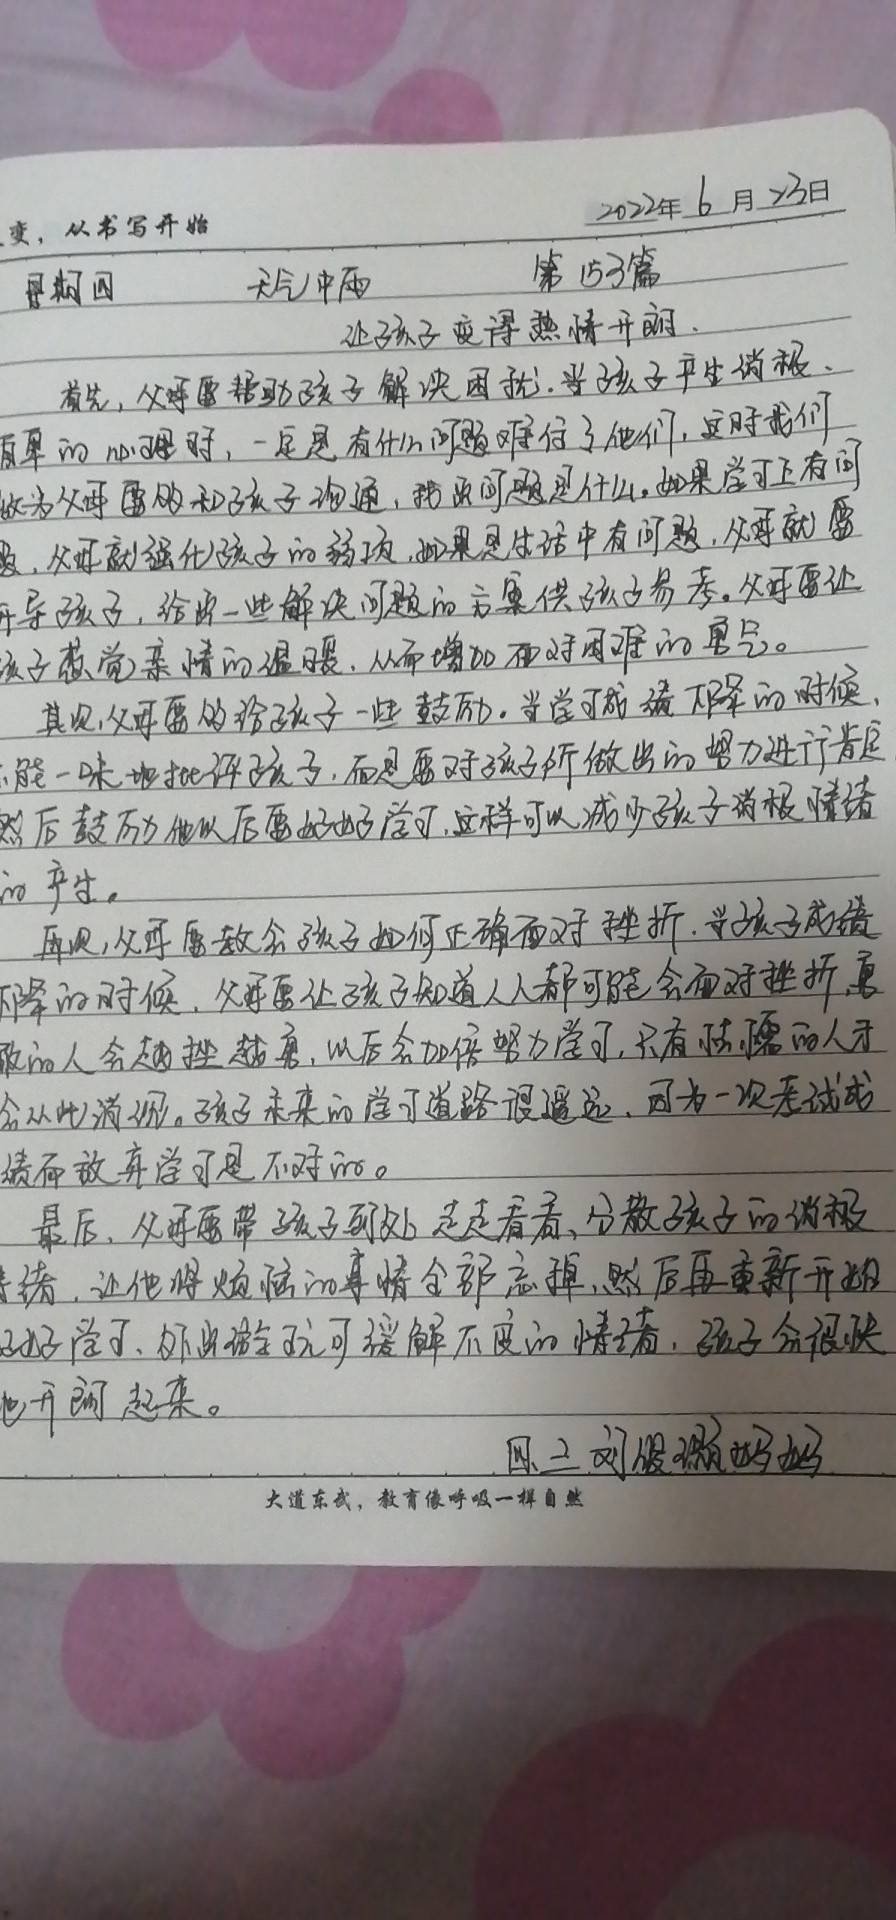 变，从书写开始
2022年6月23日
星期四 天气中雨 第153篇
让孩子变得热情开朗.
首先，父母要帮助孩子解决困扰.当孩子产生消极、
的心理时，一定是有什么问题难住了他们，这时我们
做为父母要多和孩子沟通，找出问题是什么。如果学习上有问
题，父母就强化孩子的弱项，如果是生活中有问题，父母就要
开导孩子，给出一些解决问题的方案供孩子参考。父母要让
孩子感觉亲情的温暖，从而增加面对困难的勇气。
其次，父母要多给孩子一些鼓励。当学习成绩下降的时候，
能一味地批评孩子，而是要对孩子所做出的努力进行肯定
然后鼓励他以后要好好学习，这样可以减少孩子消极情绪
的产生。
再次，父母要教会孩子如何正确面对挫折.当孩子成绩
下降的时候，父母要让孩子知道人人都可能会面对挫折，勇
敢的人会越挫越勇，以后会加倍努力学习，只有怯懦的人才
会从此消沉。孩子未来的学习道路很遥远，因为一次考试成
绩而放弃学习是不对的。
最后，父母要带孩子到处走走看看、分散孩子的消极
情绪，让他将烦恼的事情全部忘掉，然后再重新开始
好好学习、外出游玩可缓解不良的情绪，孩子会很快
地开朗起来。
四.二 刘 妈妈
大道东武，教育像呼吸一样自然